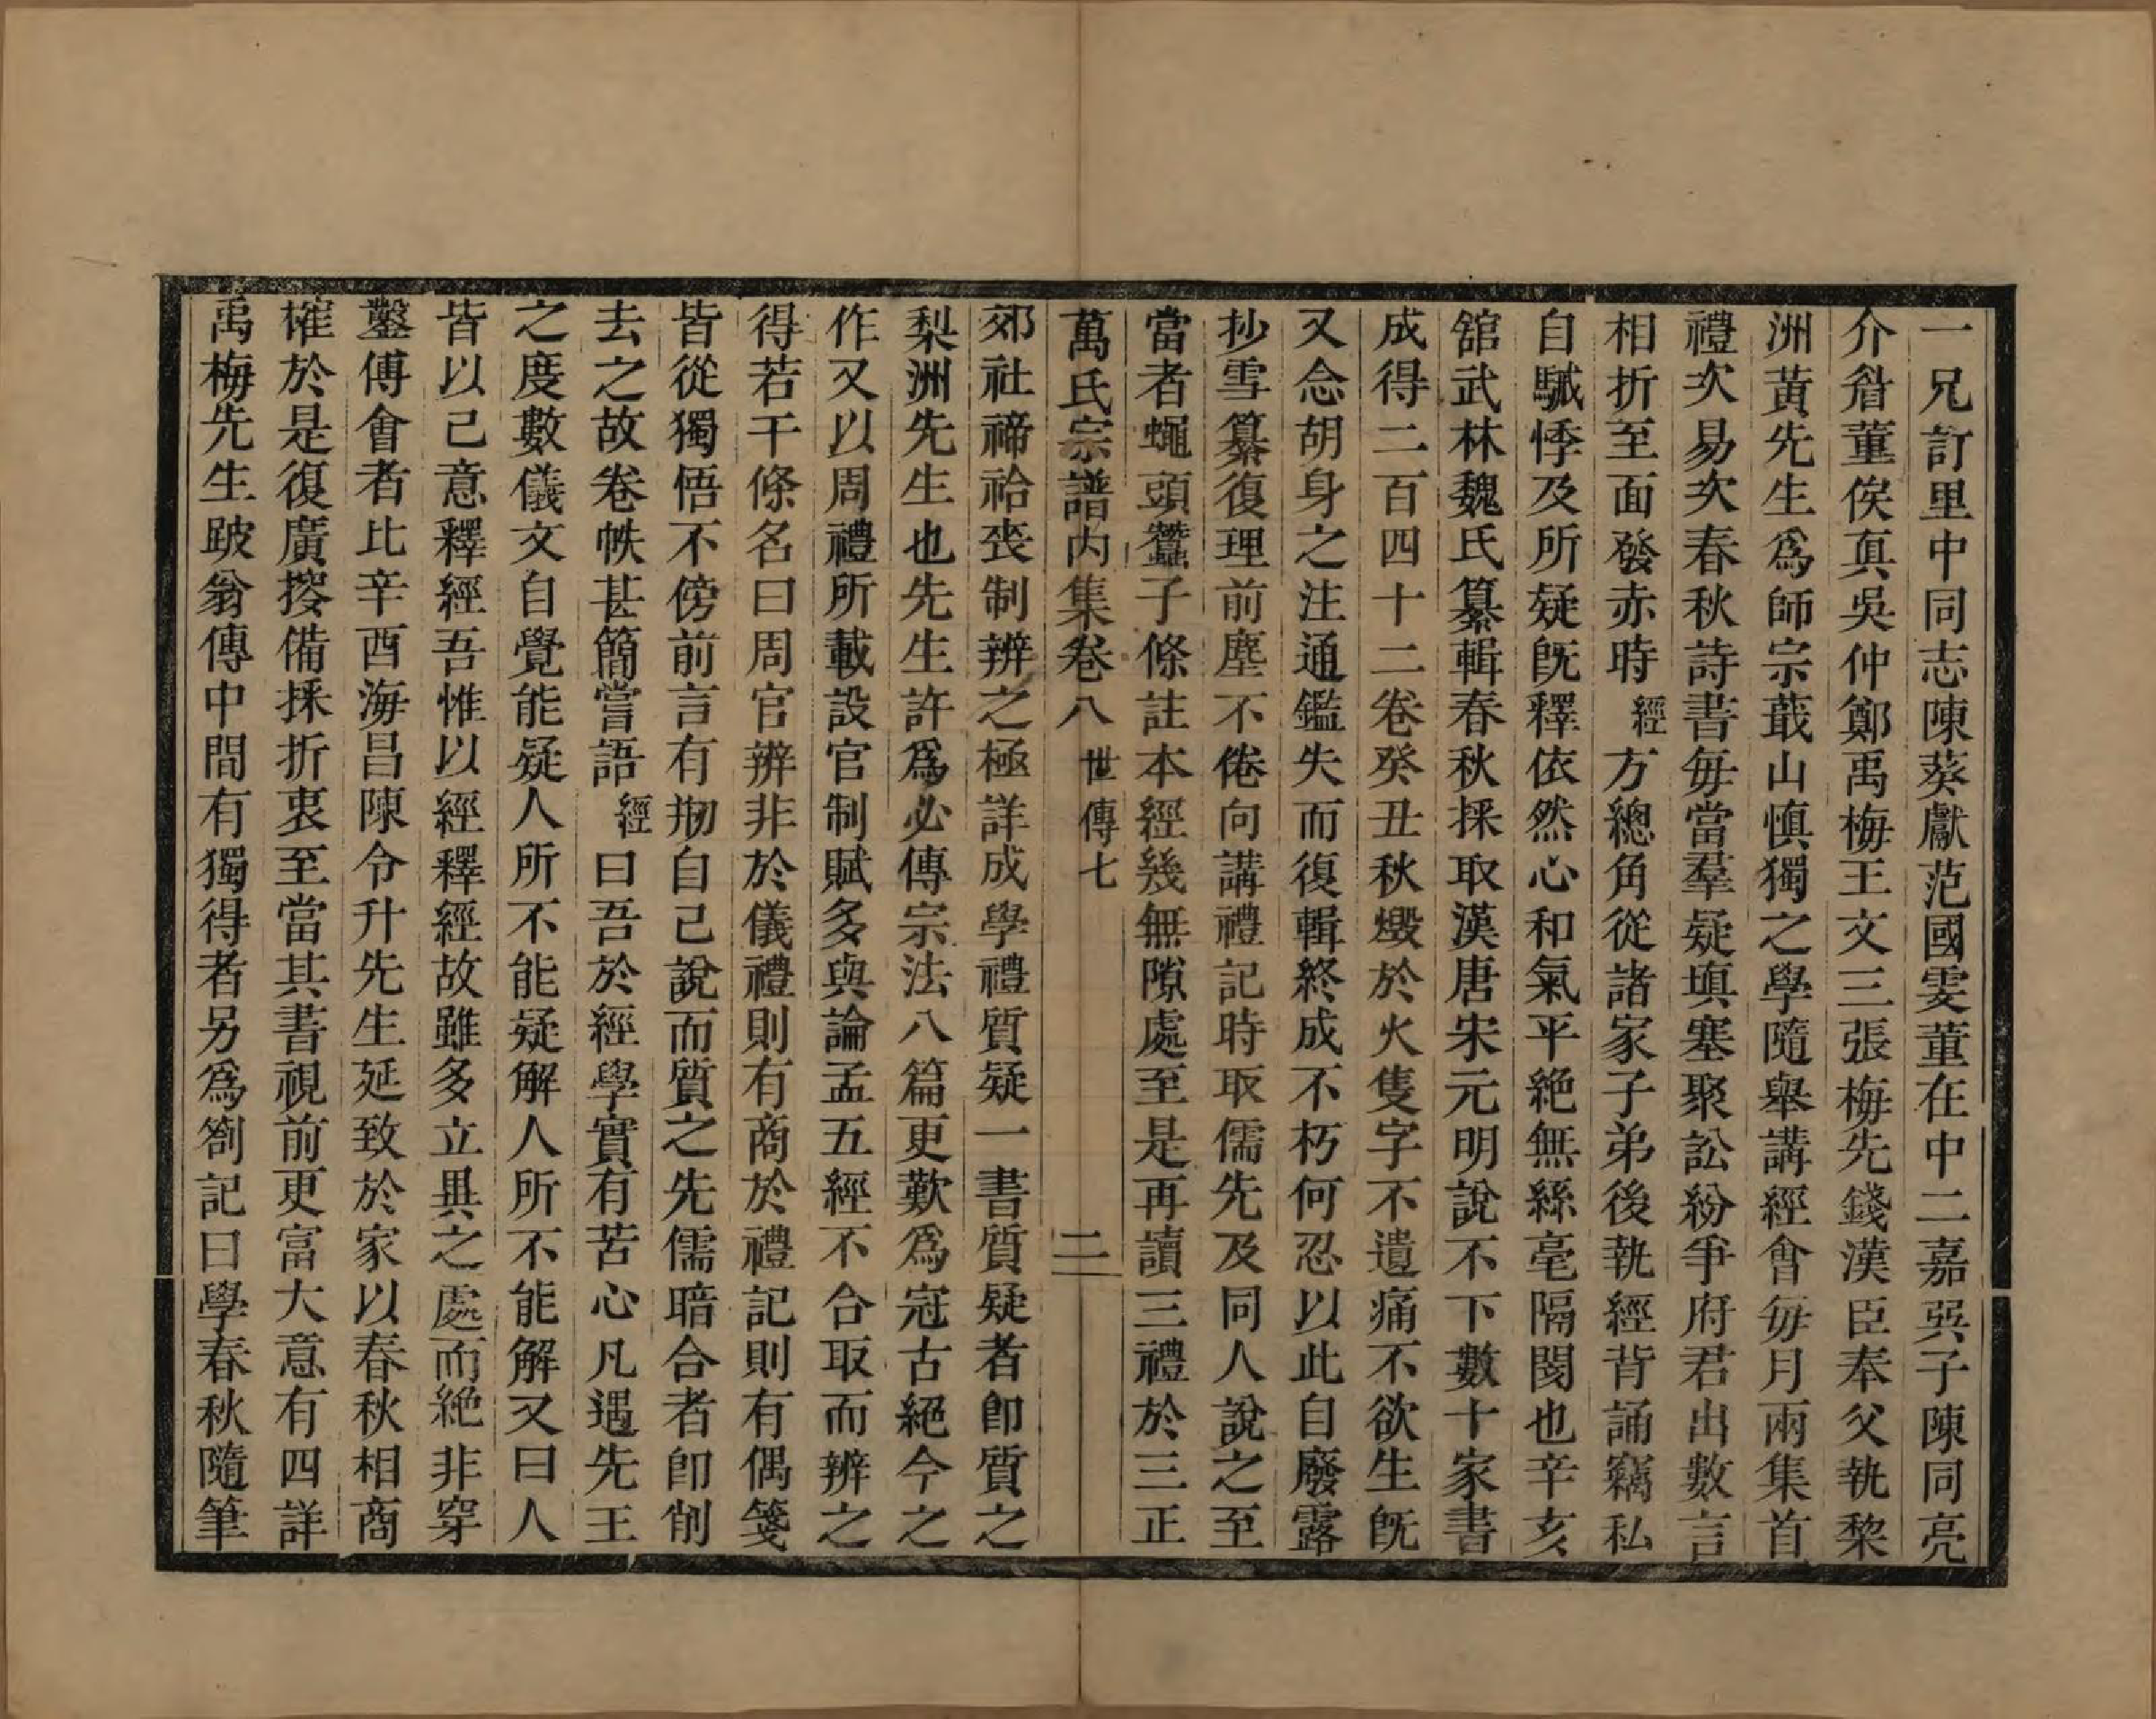 一兄訂里中同志陳葵獻范國雯董在中二嘉巽子陳同亮
介眉董俟真吳仲鄭禹梅王文三張梅先錢漢臣奉父執棃
洲黃先生爲師宗蕺山慎獨之學隨舉講經會每月兩集首
禮次易次春秋詩書每當羣疑塡塞聚訟紛爭府君出數言
相折至面發赤時經方總角從諸家子弟後執經背誦竊私
自駴悸及所疑旣釋依然心和氣平絶無絲毫隔閡也辛亥
舘武林魏氏纂輯春秋採取漢唐宋元明說不下數十家書
成得二百四十二卷癸丑秋燬於火隻字不遺痛不欲生旣
又念胡身之注通鑑失而復輯終成不朽何忍以此自廢露
抄雪纂復理前塵不倦向講禮記時取儒先及同人說之至
當者蠅頭蠶子條註本經幾無隙處至是再讀三禮於三正
萬氏宗譜內集卷八 世傳七 二
郊社禘祫喪制辨之極詳成學禮質疑一書質疑者卽質之
梨洲先生也先生許爲必傳宗法八篇更歎爲冠古絕今之
作又以周禮所載設官制賦多與論孟五經不合取而辨之
得若干條名曰周官辨非於儀禮則有商於禮記則有偶箋
皆從獨悟不傍前言有剏自己說而質之先儒暗合者卽削
去之故卷帙甚簡嘗語經曰吾於經學實有苦心凡遇先王
之度數儀文自覺能疑人所不能疑解人所不能解又曰人
皆以己意釋經吾惟以經釋經故雖多立異之處而絕非穿
鑿傅會者比辛酉海昌陳令升先生延致於家以春秋相商
榷於是復廣搜備採折衷至當其書視前更富大意有四詳
禹梅先生跛翁傳中間有獨得者另爲劄記曰學春秋隨筆